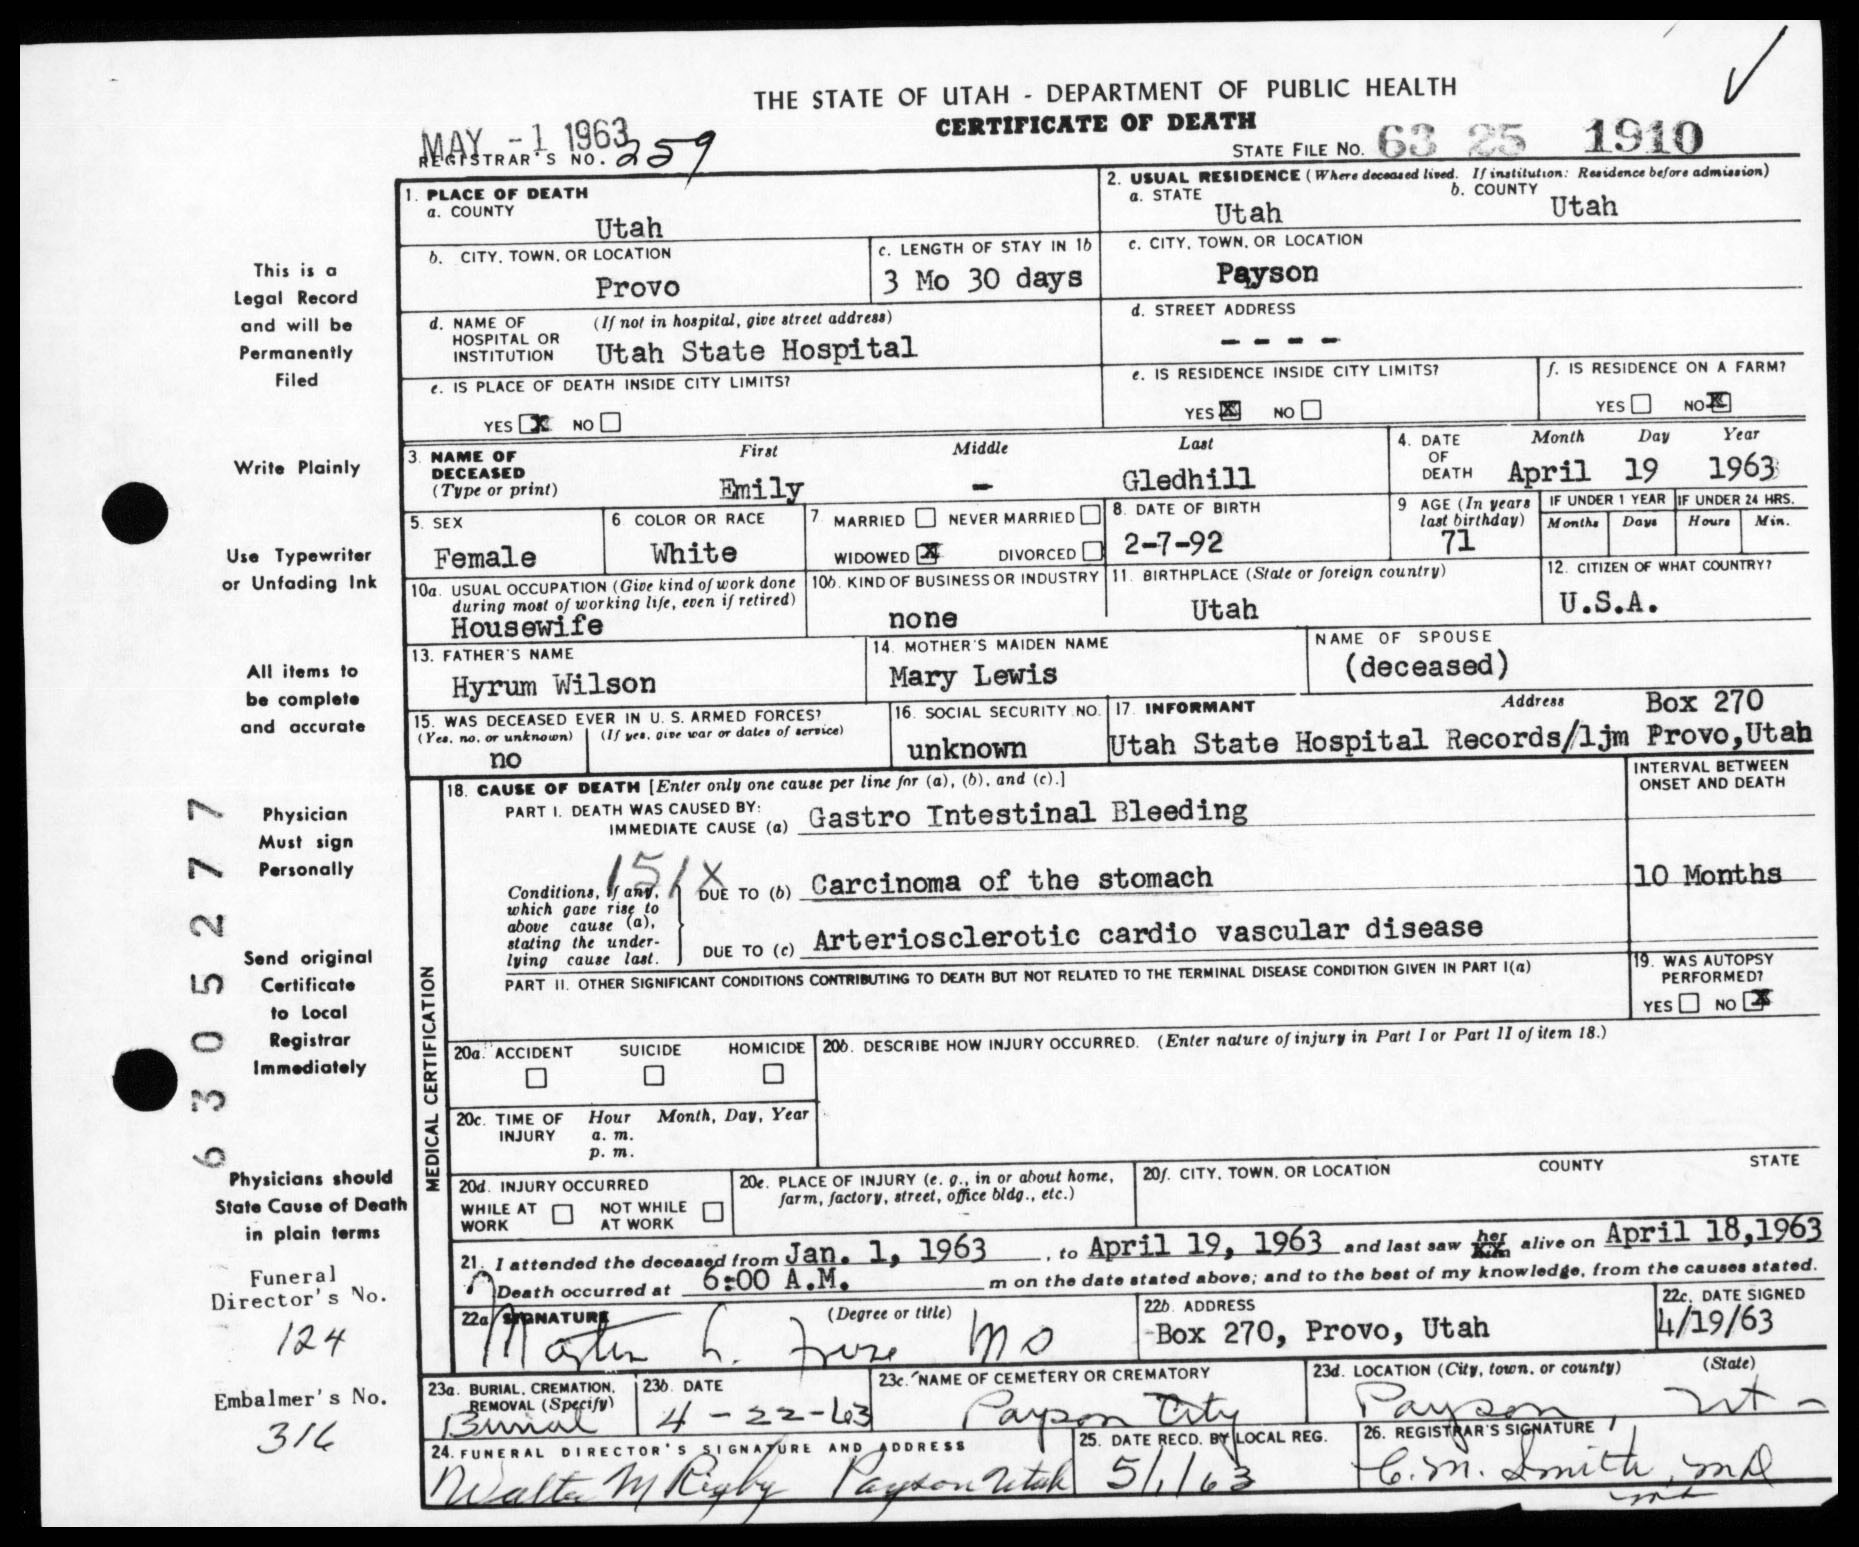 THE STATE OF UTAH - DEPARTMENT OF PUBLIC HEALTH
CERTIFICATE OF DEATH
MAY -1 1963
REGISTRAR'S NO. 259
STATE FILE NO. 63 25 1910
1. PLACE OF DEATH
a. COUNTY
Utah
2. USUAL RESIDENCE (Where deceased lived. If institution: Residence before admission)
a. STATE
Utah
b. COUNTY
Utah
b. CITY, TOWN, OR LOCATION
Provo
c. LENGTH OF STAY IN 1b
3 Mo 30 days
c. CITY, TOWN, OR LOCATION
Payson
d. NAME OF HOSPITAL OR INSTITUTION
(If not in hospital, give street address)
Utah State Hospital
d. STREET ADDRESS
- - - -
e. IS PLACE OF DEATH INSIDE CITY LIMITS?
YES X NO
e. IS RESIDENCE INSIDE CITY LIMITS?
YES X NO
f. IS RESIDENCE ON A FARM?
YES NO X
3. NAME OF DECEASED
(Type or print)
First Middle Last
Emily - Gledhill
4. DATE OF DEATH
Month Day Year
April 19 1963
5. SEX
Female
6 COLOR OR RACE
White
7 MARRIED NEVER MARRIED
WIDOWED X DIVORCED
8. DATE OF BIRTH
2-7-92
9 AGE (In years last birthday)
71
IF UNDER 1 YEAR
Months Days
IF UNDER 24 HRS.
Hours Min.
10a. USUAL OCCUPATION (Give kind of work done
during most of working life, even if retired)
Housewife
10b. KIND OF BUSINESS OR INDUSTRY
none
11. BIRTHPLACE (State or foreign country)
Utah
12. CITIZEN OF WHAT COUNTRY?
U.S.A.
13. FATHER'S NAME
Hyrum Wilson
14. MOTHER'S MAIDEN NAME
Mary Lewis
NAME OF SPOUSE
(deceased)
15. WAS DECEASED EVER IN U. S. ARMED FORCES?
(Yes, no, or unknown) (If yes, give war or dates of service)
no
16. SOCIAL SECURITY NO.
unknown
17. INFORMANT Address Box 270
Utah State Hospital Records/ljm Provo,Utah
MEDICAL CERTIFICATION
18. CAUSE OF DEATH [Enter only one cause per line for (a), (b), and (c).]
INTERVAL BETWEEN
ONSET AND DEATH
PART I. DEATH WAS CAUSED BY:
IMMEDIATE CAUSE (a) Gastro Intestinal Bleeding
151X
Conditions, if any,
which gave rise to
above cause (a),
stating the under-
lying cause last.
DUE TO (b) Carcinoma of the stomach
10 Months
DUE TO (c) Arteriosclerotic cardio vascular disease
PART II. OTHER SIGNIFICANT CONDITIONS CONTRIBUTING TO DEATH BUT NOT RELATED TO THE TERMINAL DISEASE CONDITION GIVEN IN PART I(a)
19. WAS AUTOPSY
PERFORMED?
YES NO X
20a. ACCIDENT SUICIDE HOMICIDE
20b. DESCRIBE HOW INJURY OCCURRED. (Enter nature of injury in Part I or Part II of item 18.)
20c. TIME OF INJURY
Hour Month, Day, Year
a. m.
p. m.
20d. INJURY OCCURRED
WHILE AT WORK NOT WHILE AT WORK
20e. PLACE OF INJURY (e. g., in or about home,
farm, factory, street, office bldg., etc.)
20f. CITY, TOWN, OR LOCATION COUNTY STATE
21. I attended the deceased from Jan. 1, 1963, to April 19, 1963 and last saw her alive on April 18,1963
Death occurred at 6:00 A.M. m on the date stated above; and to the best of my knowledge, from the causes stated.
22a SIGNATURE (Degree or title)
MD
22b. ADDRESS
Box 270, Provo, Utah
22c. DATE SIGNED
4/19/63
23a. BURIAL, CREMATION,
REMOVAL (Specify)
Burial
23b. DATE
4-22-63
23c. NAME OF CEMETERY OR CREMATORY
Payson City
23d. LOCATION (City, town, or county) (State)
Payson Ut-
24. FUNERAL DIRECTOR'S SIGNATURE AND ADDRESS
Walter M Rigby Payson Utah
25. DATE RECD. BY LOCAL REG.
5/1/63
26. REGISTRAR'S SIGNATURE
C. M. Smith, MD
This is a
Legal Record
and will be
Permanently
Filed
Write Plainly
Use Typewriter
or Unfading Ink
All items to
be complete
and accurate
Physician
Must sign
Personally
Send original
Certificate
to Local
Registrar
Immediately
Physicians should
State Cause of Death
in plain terms
Funeral
Director's No.
124
Embalmer's No.
316
6305277